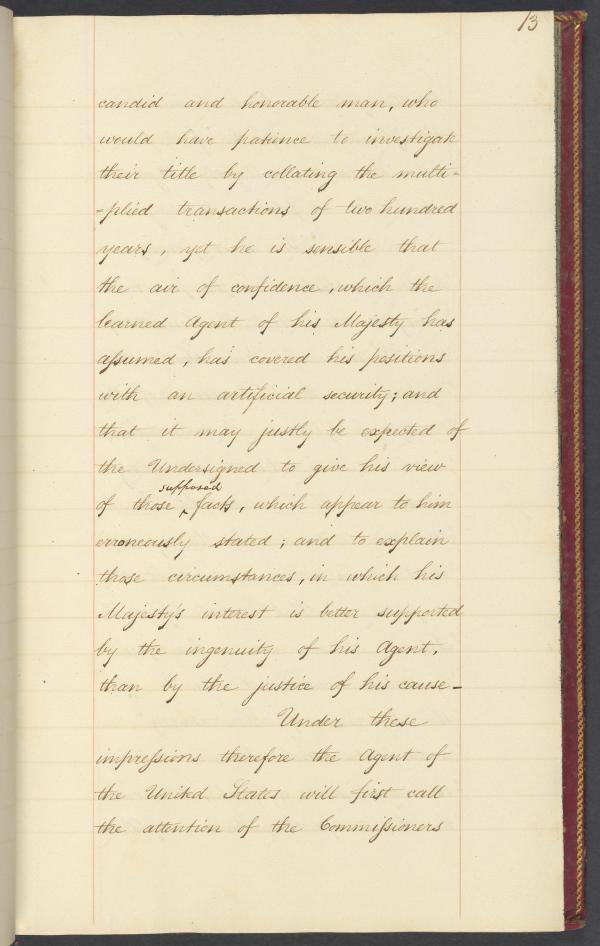 13
candid and honorable man, who
would have patience to investigate
their title by collating the multi-
-plied transactions of two hundred
years, yet he is sensible that
the air of confidence, which the
learned Agent of his Majesty has
assumed, has covered his positions
with an artificial security; and
that it may justly be expected of
the Undersigned to give his view
supposed
of those ‸ facts, which appear to him
erroneously stated; and to explain
those circumstances, in which his
Majesty's interest is better supported
by the ingenuity of his Agent,
than by the justice of his cause—
Under these
impressions therefore the Agent of
the United States will first call
the attention of the Commissioners